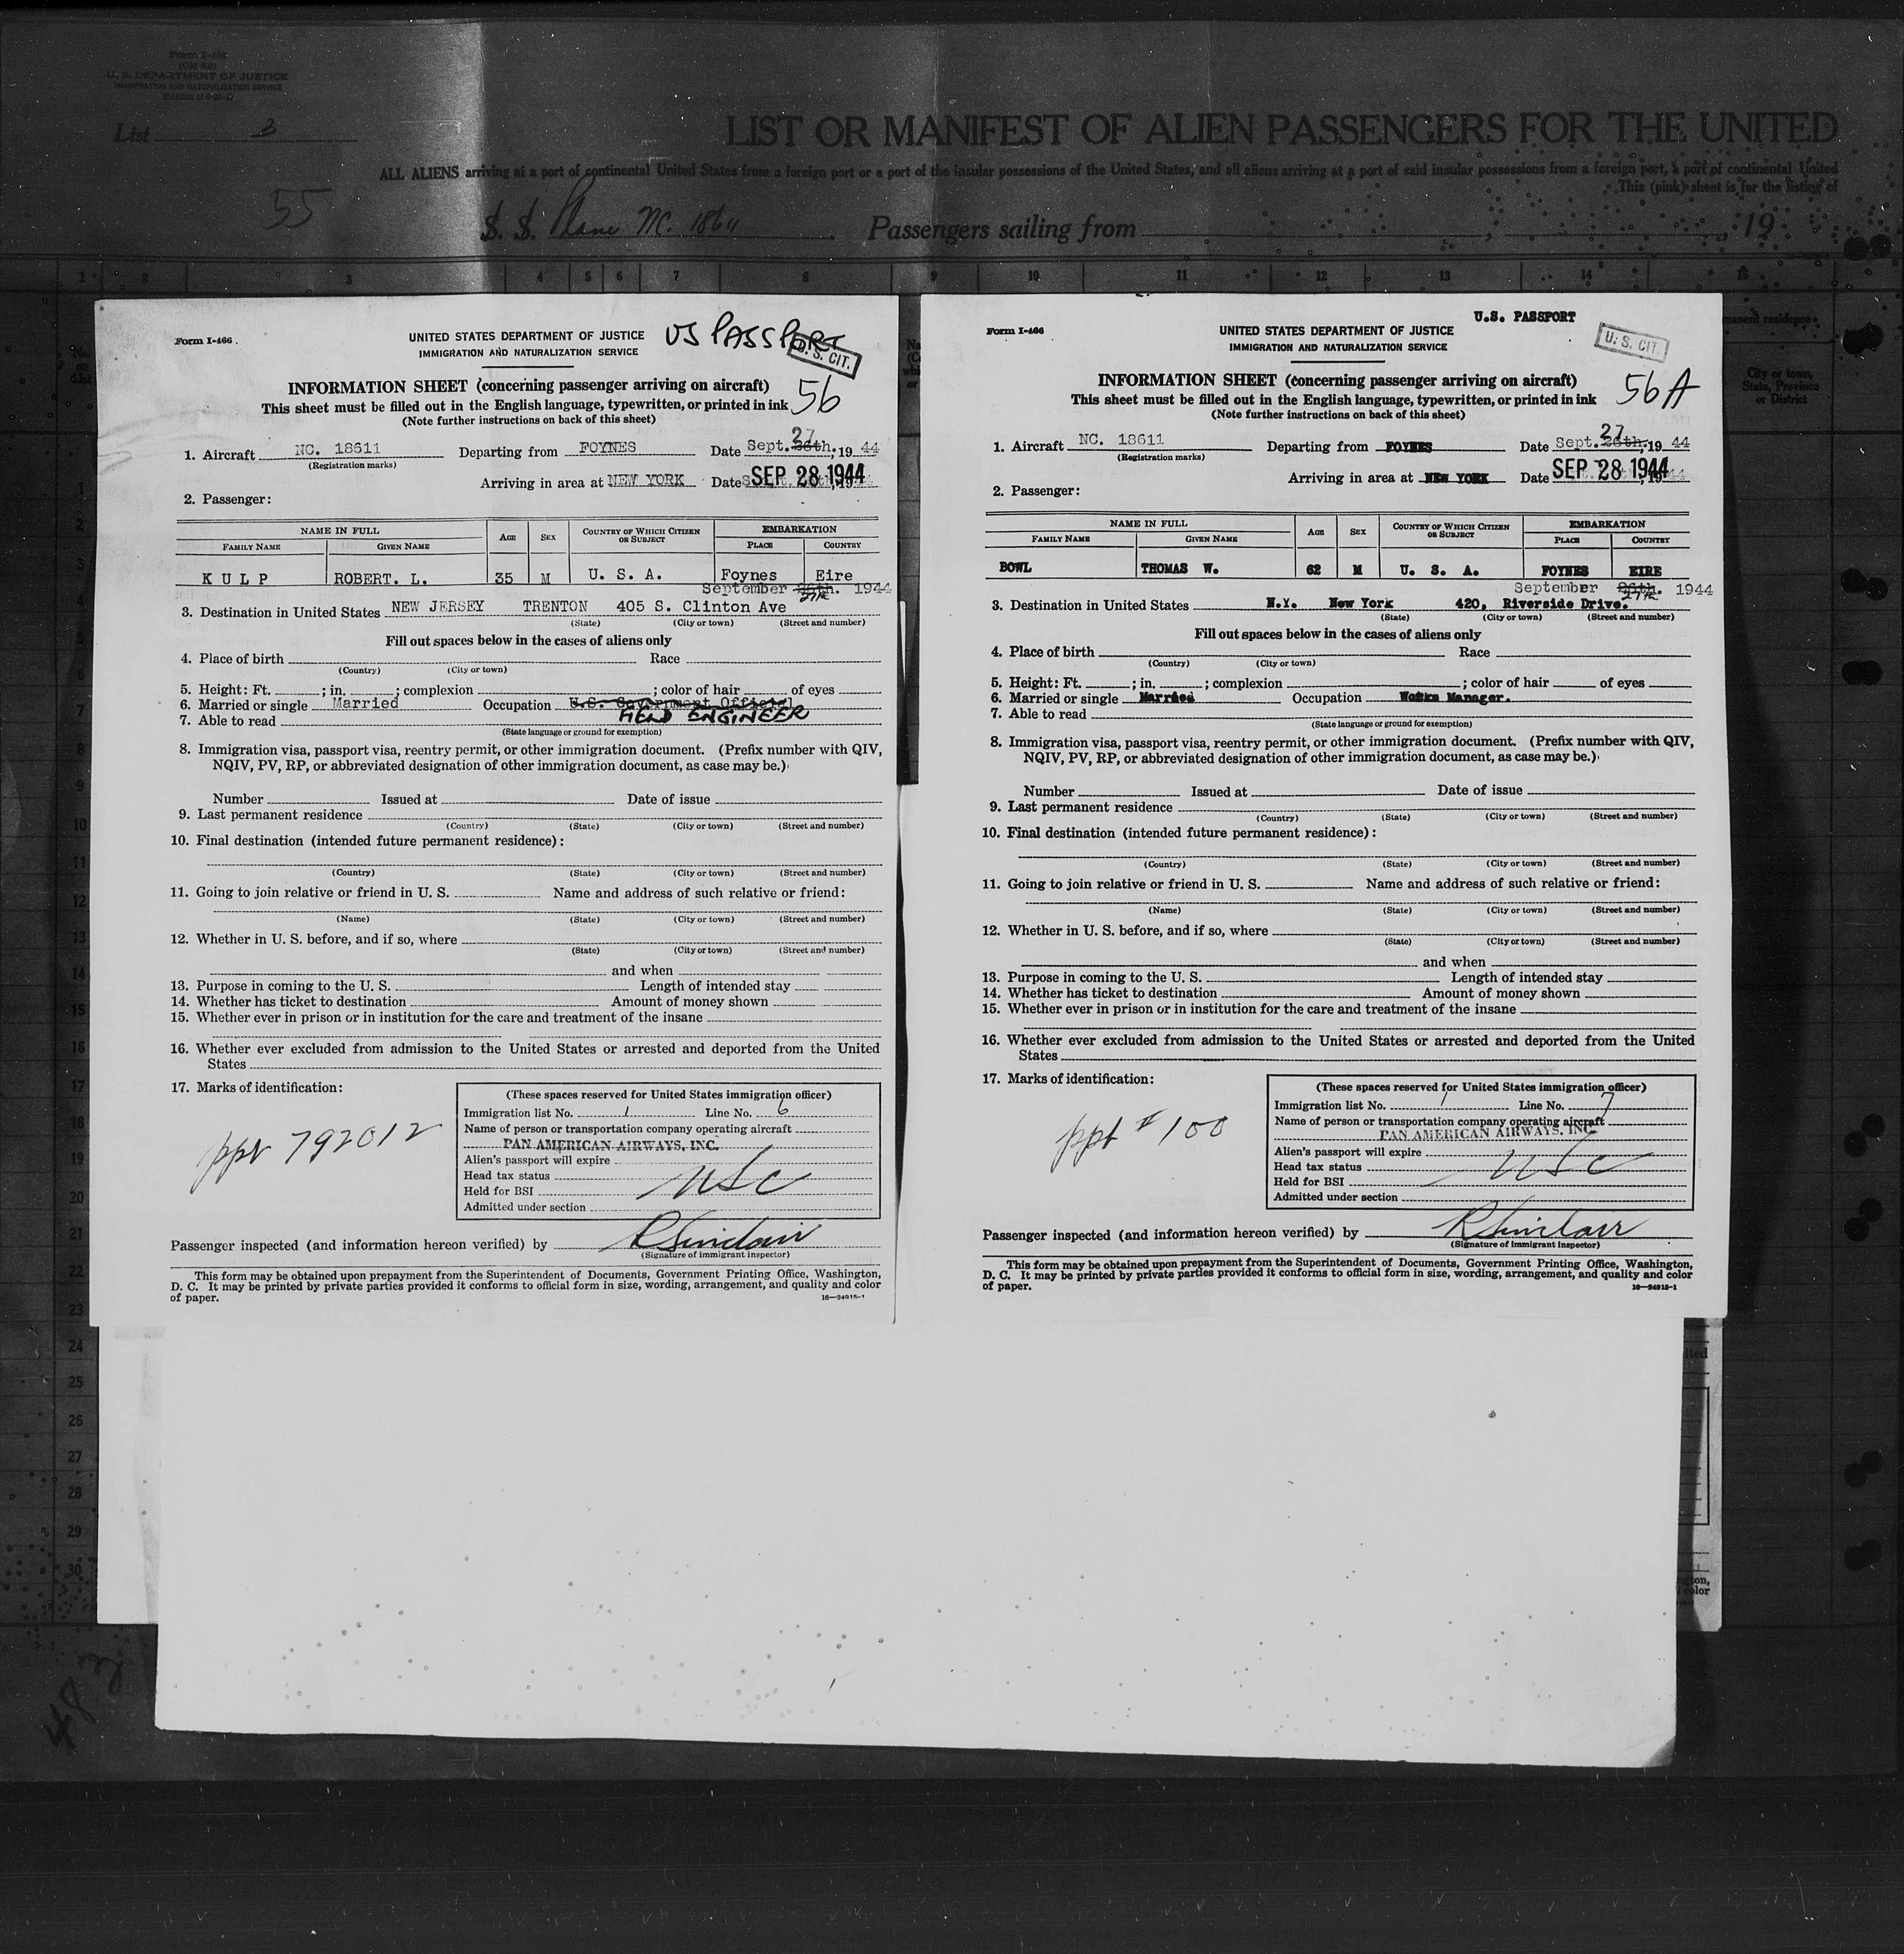 Form I-466
(Old 500)
U. S. DEPARTMENT OF JUSTICE
IMMIGRATION AND NATURALIZATION SERVICE
List 3
LIST OR MANIFEST OF ALIEN PASSENGERS FOR THE UNITED
ALL ALIENS arriving at a port of continental United States from a foreign port or a port of the insular possessions of the United States, and all aliens arriving at a port of said insular possessions from a foreign port, a port of continental United
This (pink) sheet is for the listing of
55
S. S. Plane NC. 18611 Passengers sailing from , 19
1 2 3 4 5 6 7 8 9 10 11 12 13 14 15
Form I-466
UNITED STATES DEPARTMENT OF JUSTICE
IMMIGRATION AND NATURALIZATION SERVICE
US PASSPORT
U. S. CIT.
INFORMATION SHEET (concerning passenger arriving on aircraft)
56
This sheet must be filled out in the English language, typewritten, or printed in ink
(Note further instructions on back of this sheet)
1. Aircraft NC. 18611 Departing from FOYNES Date Sept. 26th. 27, 19 44
(Registration marks)
Arriving in area at NEW YORK Date SEP 28 1944
2. Passenger:
NAME IN FULL AGE SEX COUNTRY OF WHICH CITIZEN OR SUBJECT EMBARKATION
FAMILY NAME GIVEN NAME PLACE COUNTRY
KULP ROBERT. L. 35 M U. S. A. Foynes Eire
September 26th. 27th 1944
3. Destination in United States NEW JERSEY TRENTON 405 S. Clinton Ave
(State) (City or town) (Street and number)
Fill out spaces below in the cases of aliens only
4. Place of birth Race
(Country) (City or town)
5. Height: Ft. ; in. ; complexion ; color of hair of eyes
6. Married or single Married Occupation U.S. Government Official
FIELD ENGINEER
7. Able to read
(State language or ground for exemption)
8. Immigration visa, passport visa, reentry permit, or other immigration document. (Prefix number with QIV,
NQIV, PV, RP, or abbreviated designation of other immigration document, as case may be.)
Number Issued at Date of issue
9. Last permanent residence
(Country) (State) (City or town) (Street and number)
10. Final destination (intended future permanent residence):
(Country) (State) (City or town) (Street and number)
11. Going to join relative or friend in U. S. Name and address of such relative or friend:
(Name) (State) (City or town) (Street and number)
12. Whether in U. S. before, and if so, where
(State) (City or town) (Street and number)
and when
13. Purpose in coming to the U. S. Length of intended stay
14. Whether has ticket to destination Amount of money shown
15. Whether ever in prison or in institution for the care and treatment of the insane
16. Whether ever excluded from admission to the United States or arrested and deported from the United
States
17. Marks of identification:
ppt 792012
(These spaces reserved for United States immigration officer)
Immigration list No. 1 Line No. 6
Name of person or transportation company operating aircraft
PAN AMERICAN AIRWAYS, INC.
Alien's passport will expire
Head tax status
USC
Held for BSI
Admitted under section
Passenger inspected (and information hereon verified) by R Sinclair
(Signature of immigrant inspector)
This form may be obtained upon prepayment from the Superintendent of Documents, Government Printing Office, Washington,
D. C. It may be printed by private parties provided it conforms to official form in size, wording, arrangement, and quality and color
of paper.
16—24915-1
Form I-466
U.S. PASSPORT
UNITED STATES DEPARTMENT OF JUSTICE
IMMIGRATION AND NATURALIZATION SERVICE
U. S. CIT.
INFORMATION SHEET (concerning passenger arriving on aircraft)
56A
This sheet must be filled out in the English language, typewritten, or printed in ink
(Note further instructions on back of this sheet)
1. Aircraft NC. 18611 Departing from FOYNES Date Sept. 26th. 27, 19 44
(Registration marks)
Arriving in area at NEW YORK Date SEP 28 1944
2. Passenger:
NAME IN FULL AGE SEX COUNTRY OF WHICH CITIZEN OR SUBJECT EMBARKATION
FAMILY NAME GIVEN NAME PLACE COUNTRY
BOWL THOMAS W. 62 M U. S. A. FOYNES EIRE
September 26th. 27th 1944
3. Destination in United States N.Y. New York 420, Riverside Drive.
(State) (City or town) (Street and number)
Fill out spaces below in the cases of aliens only
4. Place of birth Race
(Country) (City or town)
5. Height: Ft. ; in. ; complexion ; color of hair of eyes
6. Married or single Married Occupation Works Manager.
7. Able to read
(State language or ground for exemption)
8. Immigration visa, passport visa, reentry permit, or other immigration document. (Prefix number with QIV,
NQIV, PV, RP, or abbreviated designation of other immigration document, as case may be.)
Number Issued at Date of issue
9. Last permanent residence
(Country) (State) (City or town) (Street and number)
10. Final destination (intended future permanent residence):
(Country) (State) (City or town) (Street and number)
11. Going to join relative or friend in U. S. Name and address of such relative or friend:
(Name) (State) (City or town) (Street and number)
12. Whether in U. S. before, and if so, where
(State) (City or town) (Street and number)
and when
13. Purpose in coming to the U. S. Length of intended stay
14. Whether has ticket to destination Amount of money shown
15. Whether ever in prison or in institution for the care and treatment of the insane
16. Whether ever excluded from admission to the United States or arrested and deported from the United
States
17. Marks of identification:
ppt # 100
(These spaces reserved for United States immigration officer)
Immigration list No. 1 Line No. 7
Name of person or transportation company operating aircraft
PAN AMERICAN AIRWAYS, INC
Alien's passport will expire
Head tax status
USC
Held for BSI
Admitted under section
Passenger inspected (and information hereon verified) by R Sinclair
(Signature of immigrant inspector)
This form may be obtained upon prepayment from the Superintendent of Documents, Government Printing Office, Washington,
D. C. It may be printed by private parties provided it conforms to official form in size, wording, arrangement, and quality and color
of paper.
16—24915-1
City or town,
State, Province
or District
483